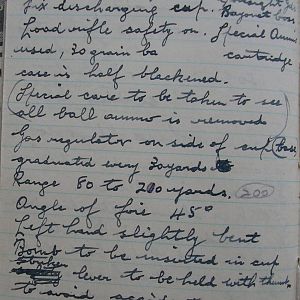 Fix discharging cup. Bayonet boss
Load rifle safety on. Special Ammo
used, 30 grain ba cartridge
case is half blackened.
(Special care to be taken to see
all ball ammo is removed)
Gas regulator on side of cup (Base
graduated every 30 yards
Range 80 to 200 yards. (200)
Angle of fire 45°
Left hand slightly bent
Bomb to be inserted in cup
lever to be held with thumb
to avoid